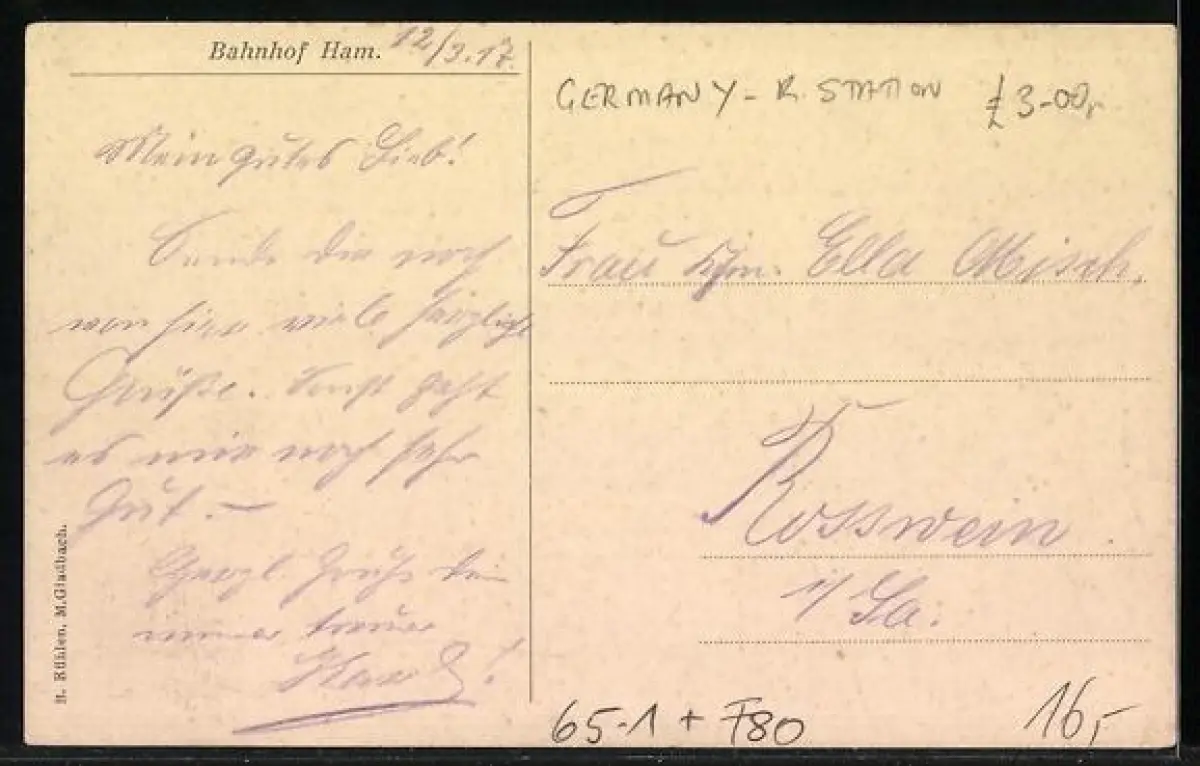 Bahnhof Ham. 12/3.17.
Mein gutes Lieb!
Sende dir noch
von hier viele herzliche
Grüße. Sonst geht
es mir noch sehr
gut. –
Herzl. Grüße dein
immer treuer
B. Kühlen, M.Gladbach.
GERMANY - R. STATION £3-00
Frau Ella Misch.
Rosswein
i/ Sa.
65-1 + F80
16,-